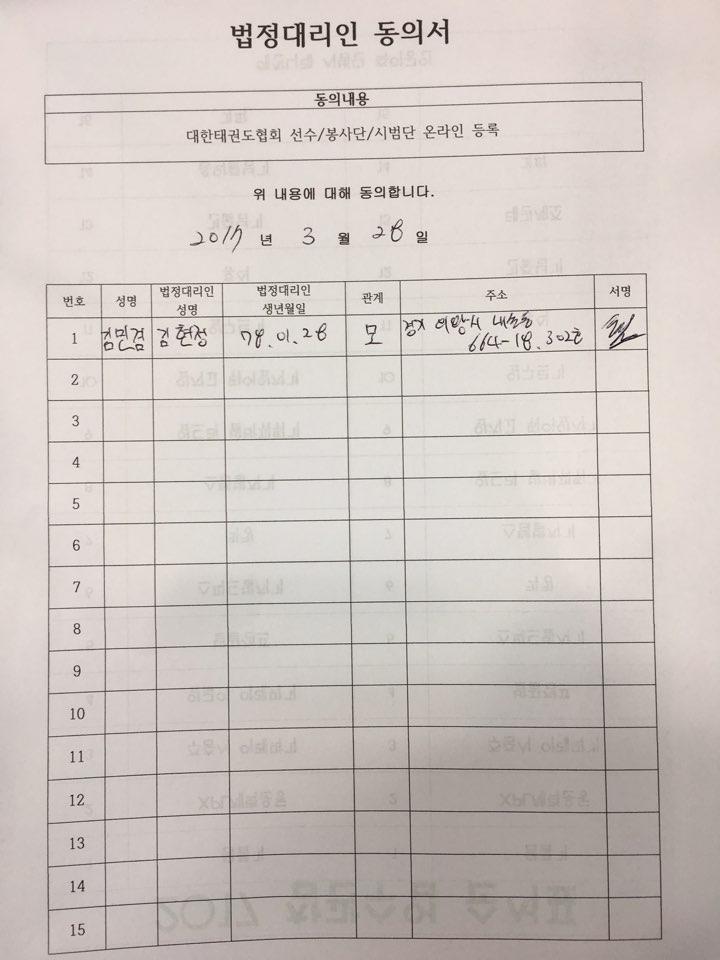 법정대리인 동의서
동의내용
대한태권도협회 선수/봉사단/시범단 온라인 등록
위 내용에 대해 동의합니다.
2017 년 3 월 28 일
번호 성명 법정대리인 성명 법정대리인 생년월일 관계 주소 서명
1 김민겸 김현정 78.01.28 모 경기 의왕시 내손동
664-18. 302호
2
3
4
5
6
7
8
9
10
11
12
13
14
15